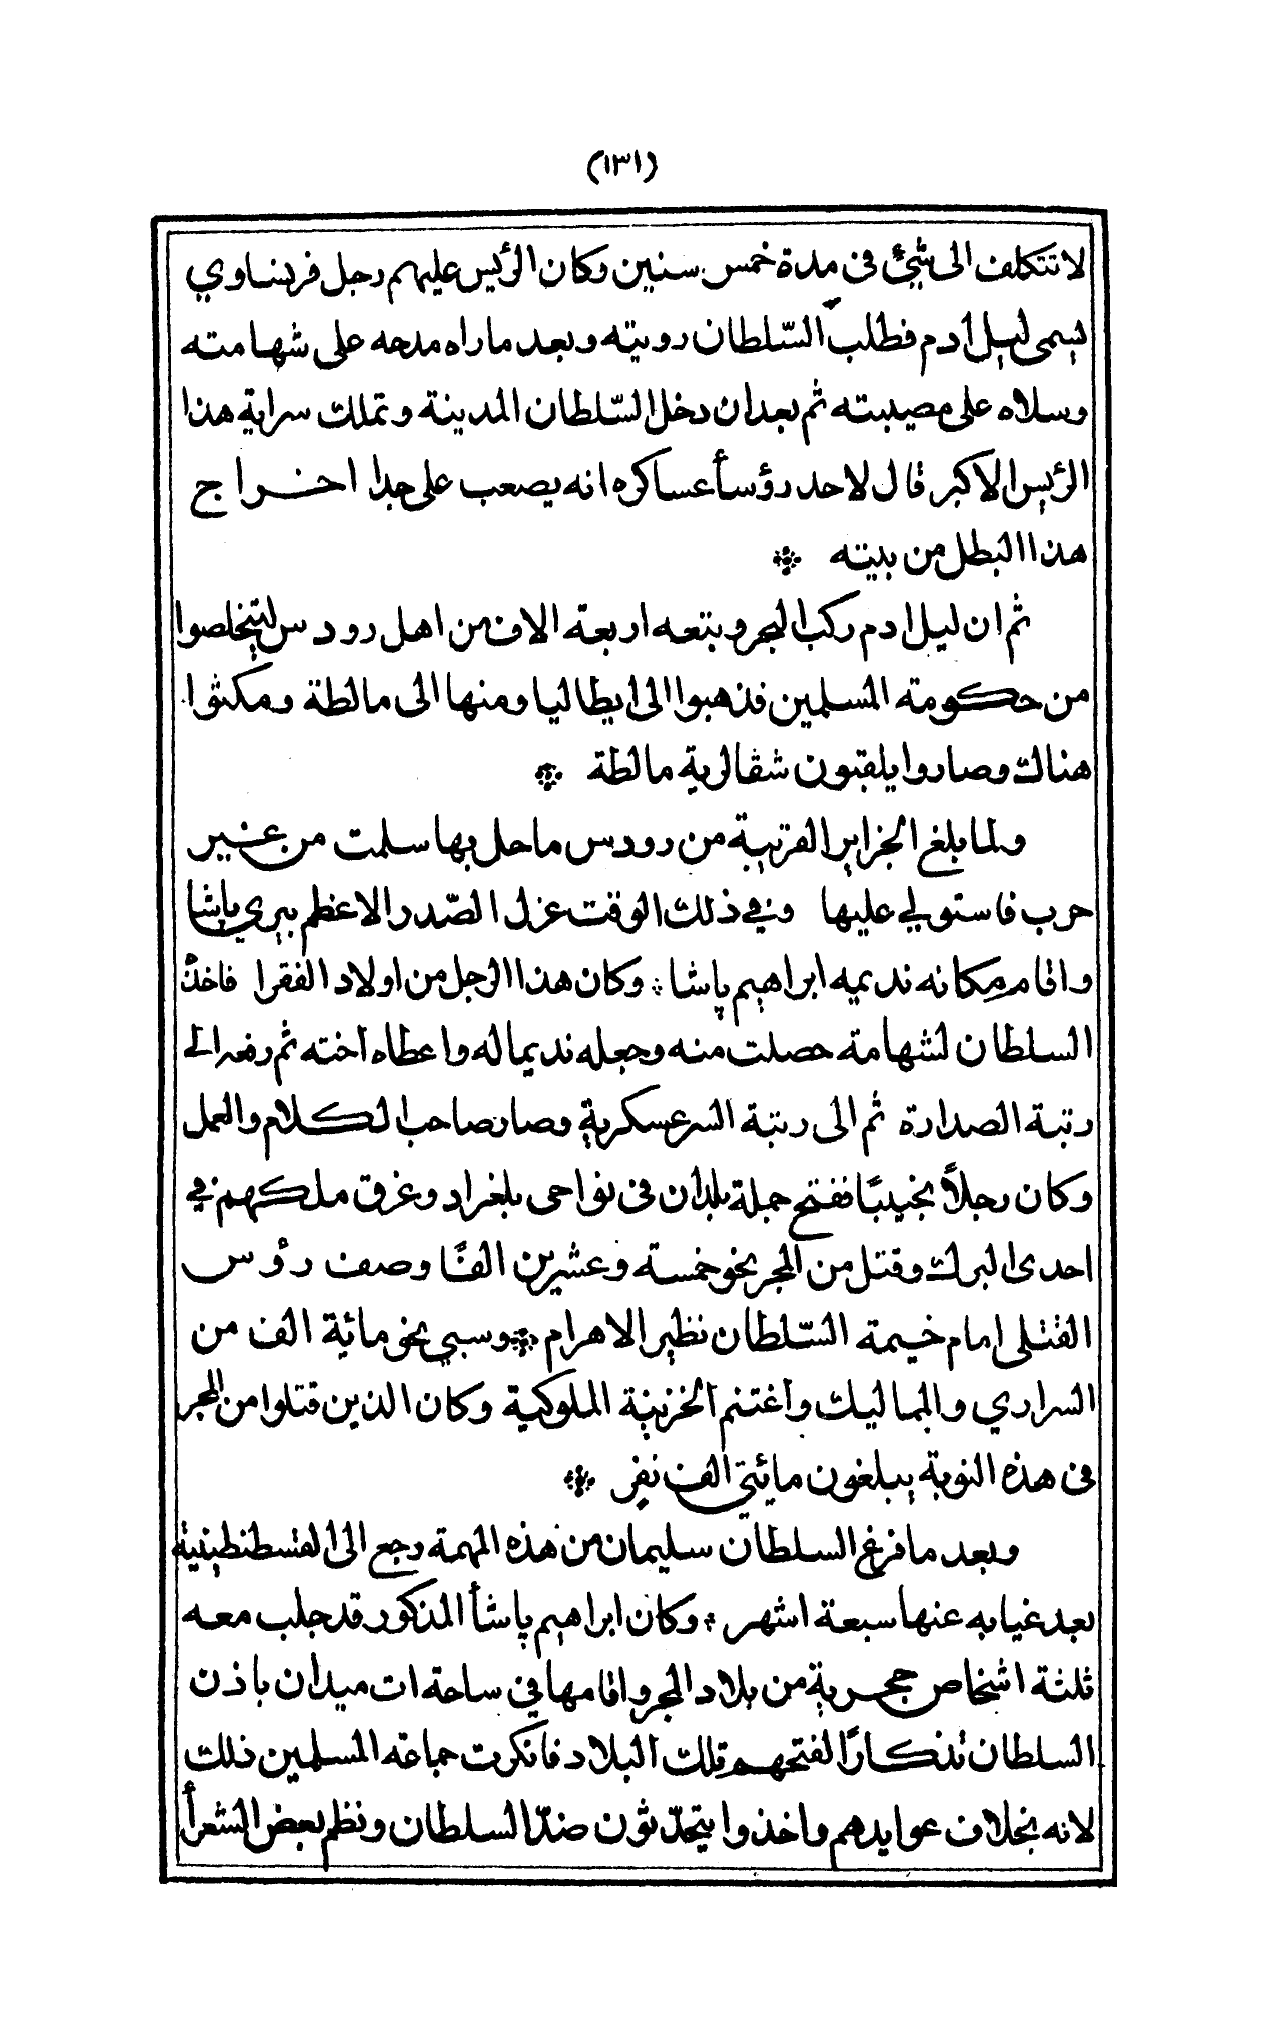 (١٣١)
لا تتكلف الى شيْ في مدة خمس سنين وكان الرئيس عليهم رجل فرنساوي
يسمى ليل ادم فطلب السّلطان رويته وبعد ما راه مدحه على شهامته
وسلاه على مصيبته ثم بعد ان دخل السّلطان المدينة وتملك سراية هذا
الرئيس الاكبر قال لاحد رؤسأ عساكره انه يصعب على جدا اخراج
هذا البطل من بيته ❊
ثم ان ليل ادم ركب البحر وبتعه اربعة الاف من اهل رودس ليتخلصوا
من حكومته المسلمين فذهبوا الى ايطاليا ومنها الى مالطة ومكثوا
هناك وصاروا يلقبون شفالرية مالطة ❊
ولما بلغ الجزاير القريبة من رودس ما حل بها سلمت من غير
حرب فاستولي عليها وفي ذلك الوقت عزل الصّدر الاعظم بيري پاشا
واقام مكانه نديمه ابراهيم پاشا ❊ وكان هذا الرجل من اولاد الفقرا فاخذه
السلطان لشهامة حصلت منه وجعله نديما له واعطاه اخته ثم رفعه الى
رتبة الصدارة ثم الى رتبة السرعسكرية وصار صاحب الكلام والعمل
وكان رجلاً نجيبًا ففتح جملة بلدان في نواحى بلغراد وغرق ملكهم في
احدى البرك وقتل من المجر نحو خمسة وعشرين الفًا وصف رؤس
القتلى امام خيمة السّلطان نظير الاهرام ❊ وسبي نحو مائة الف من
السراري والمماليك واغتنم الخزينة الملوكية وكان الذين قتلوا من المجر
في هذه النوبة يبلغون مائتي الف نفر ❊
وبعد ما فرغ السلطان سليمان من هذه المهمة رجع الى القسطنطينية
بعد غيابه عنها سبعة اشهر ❊ وكان ابراهيم پاشأ المذكور قد جلب معه
ثلثة اشخاص حجرية من بلاد المجر واقامها في ساحة ات ميدان باذن
السلطان تذكارًا لفتحهم تلك البلاد فانكرت جماعة المسلمين ذلك
لانه بخلاف عوايدهم واخذوا يتحدّثون ضدّ السلطان ونظم بعض الشعرأ